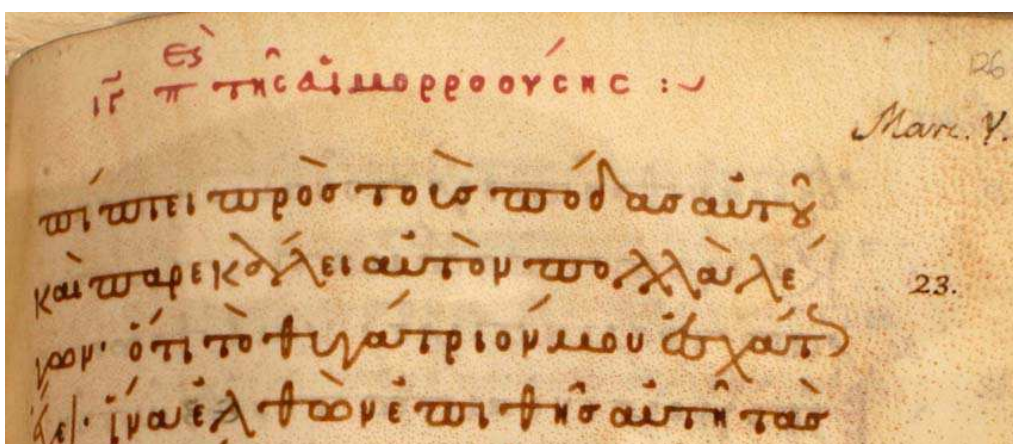 ιγ π τῆς αἱμορροούσης :~
26
Marc. V.
πίπτει πρὸς τοὺς πόδας αὐτοῦ
καὶ παρεκάλει αὐτὸν πολλὰ λέ
23.
γων· ὅτι τὸ θυγάτριόν μου ἐσχάτως
ἔχει· ἵνα ἐλθὼν ἐπιθῇς αὐτῇ τὰς